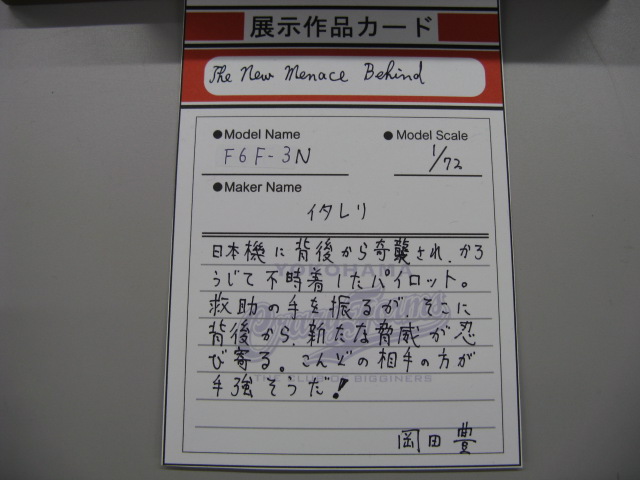 展示作品カード
The New Menace Behind
●Model Name
●Model Scale
F6F-3N
1/72
●Maker Name
イタレリ
日本機に背後から奇襲され、かろ
うじて不時着したパイロット。
救助の手を振るが そこに
背後から 新たな脅威が忍
び寄る。こんどの相手の方が
手強そうだ!
岡田 豊
YOKOHAMA
THE CLUB OF BIGGINERS